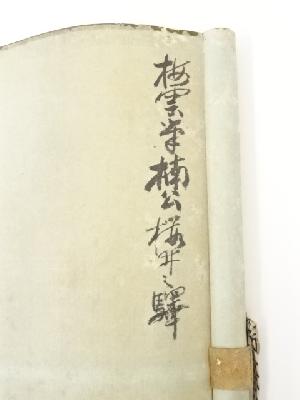 梅雲筆楠公桜井之驛